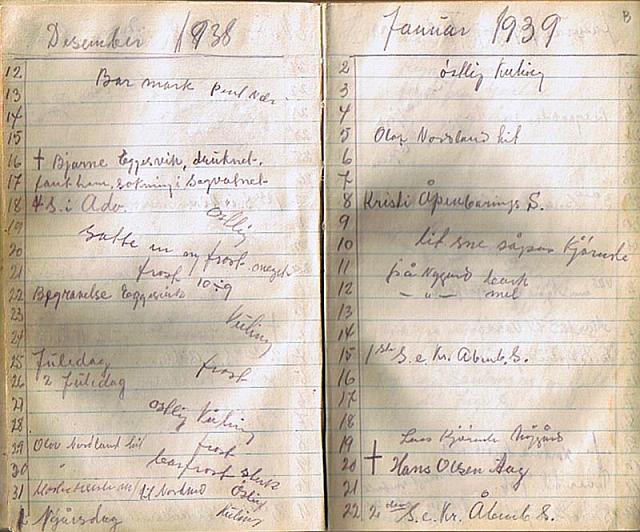 Desember 1938
12
Bar mark pent vær
13
14
15
16 † Bjarne Eggesvik, druknet.
17 fant ham, sokning i Sagvatnet
18 4 S. i Adv. Østlig
19
Satte inn frost meget
20
21 frost 10÷9
22 Begravelse Eggesvik
23 Kuling
24
25 Juledag
26 2 Juledag frost
27 østlig Kuling
28
29 Olov Nordland hit frost
30 barfrost sterk
31 til Nordland Østlig
1 Nyårsdag Kuling
Januar 1939
B
2 östlig Kuling
3
4
5 Olov Nordland hit
6
7
8 Kristi Åpenbarings S.
9
10 lit sne såpas Kjørende
11 på Nygård
12 — " —
13
14
15 1ste S. e. Kr. Åbenb. S.
16
17
18
19 Kjørende
20 † Hans Olsen Aag
21
22 2den S. e. Kr. Åbenb. S.